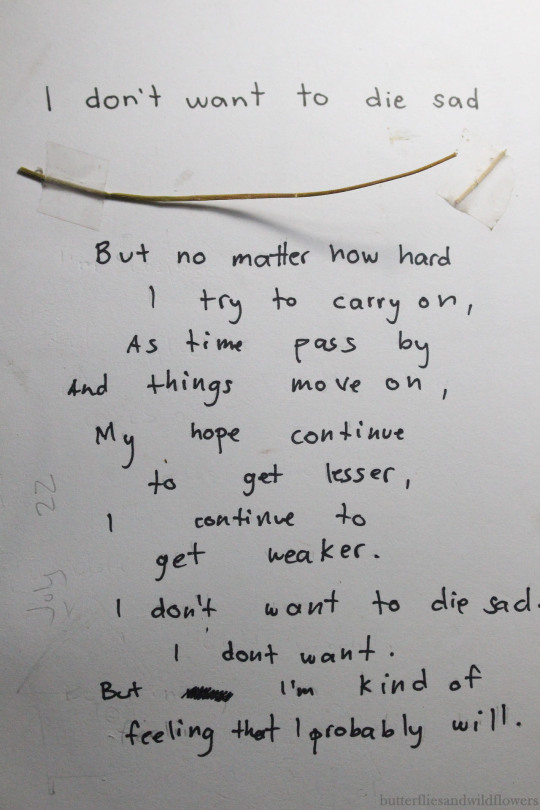 I don't want to die sad
But no matter how hard
I try to carry on,
As time pass by
And things move on,
My hope continue
to get lesser,
I continue to
get weaker.
I don't want to die sad.
I dont want.
But I'm kind of
feeling that I probably will.
July 22
butterfliesandwildflowers